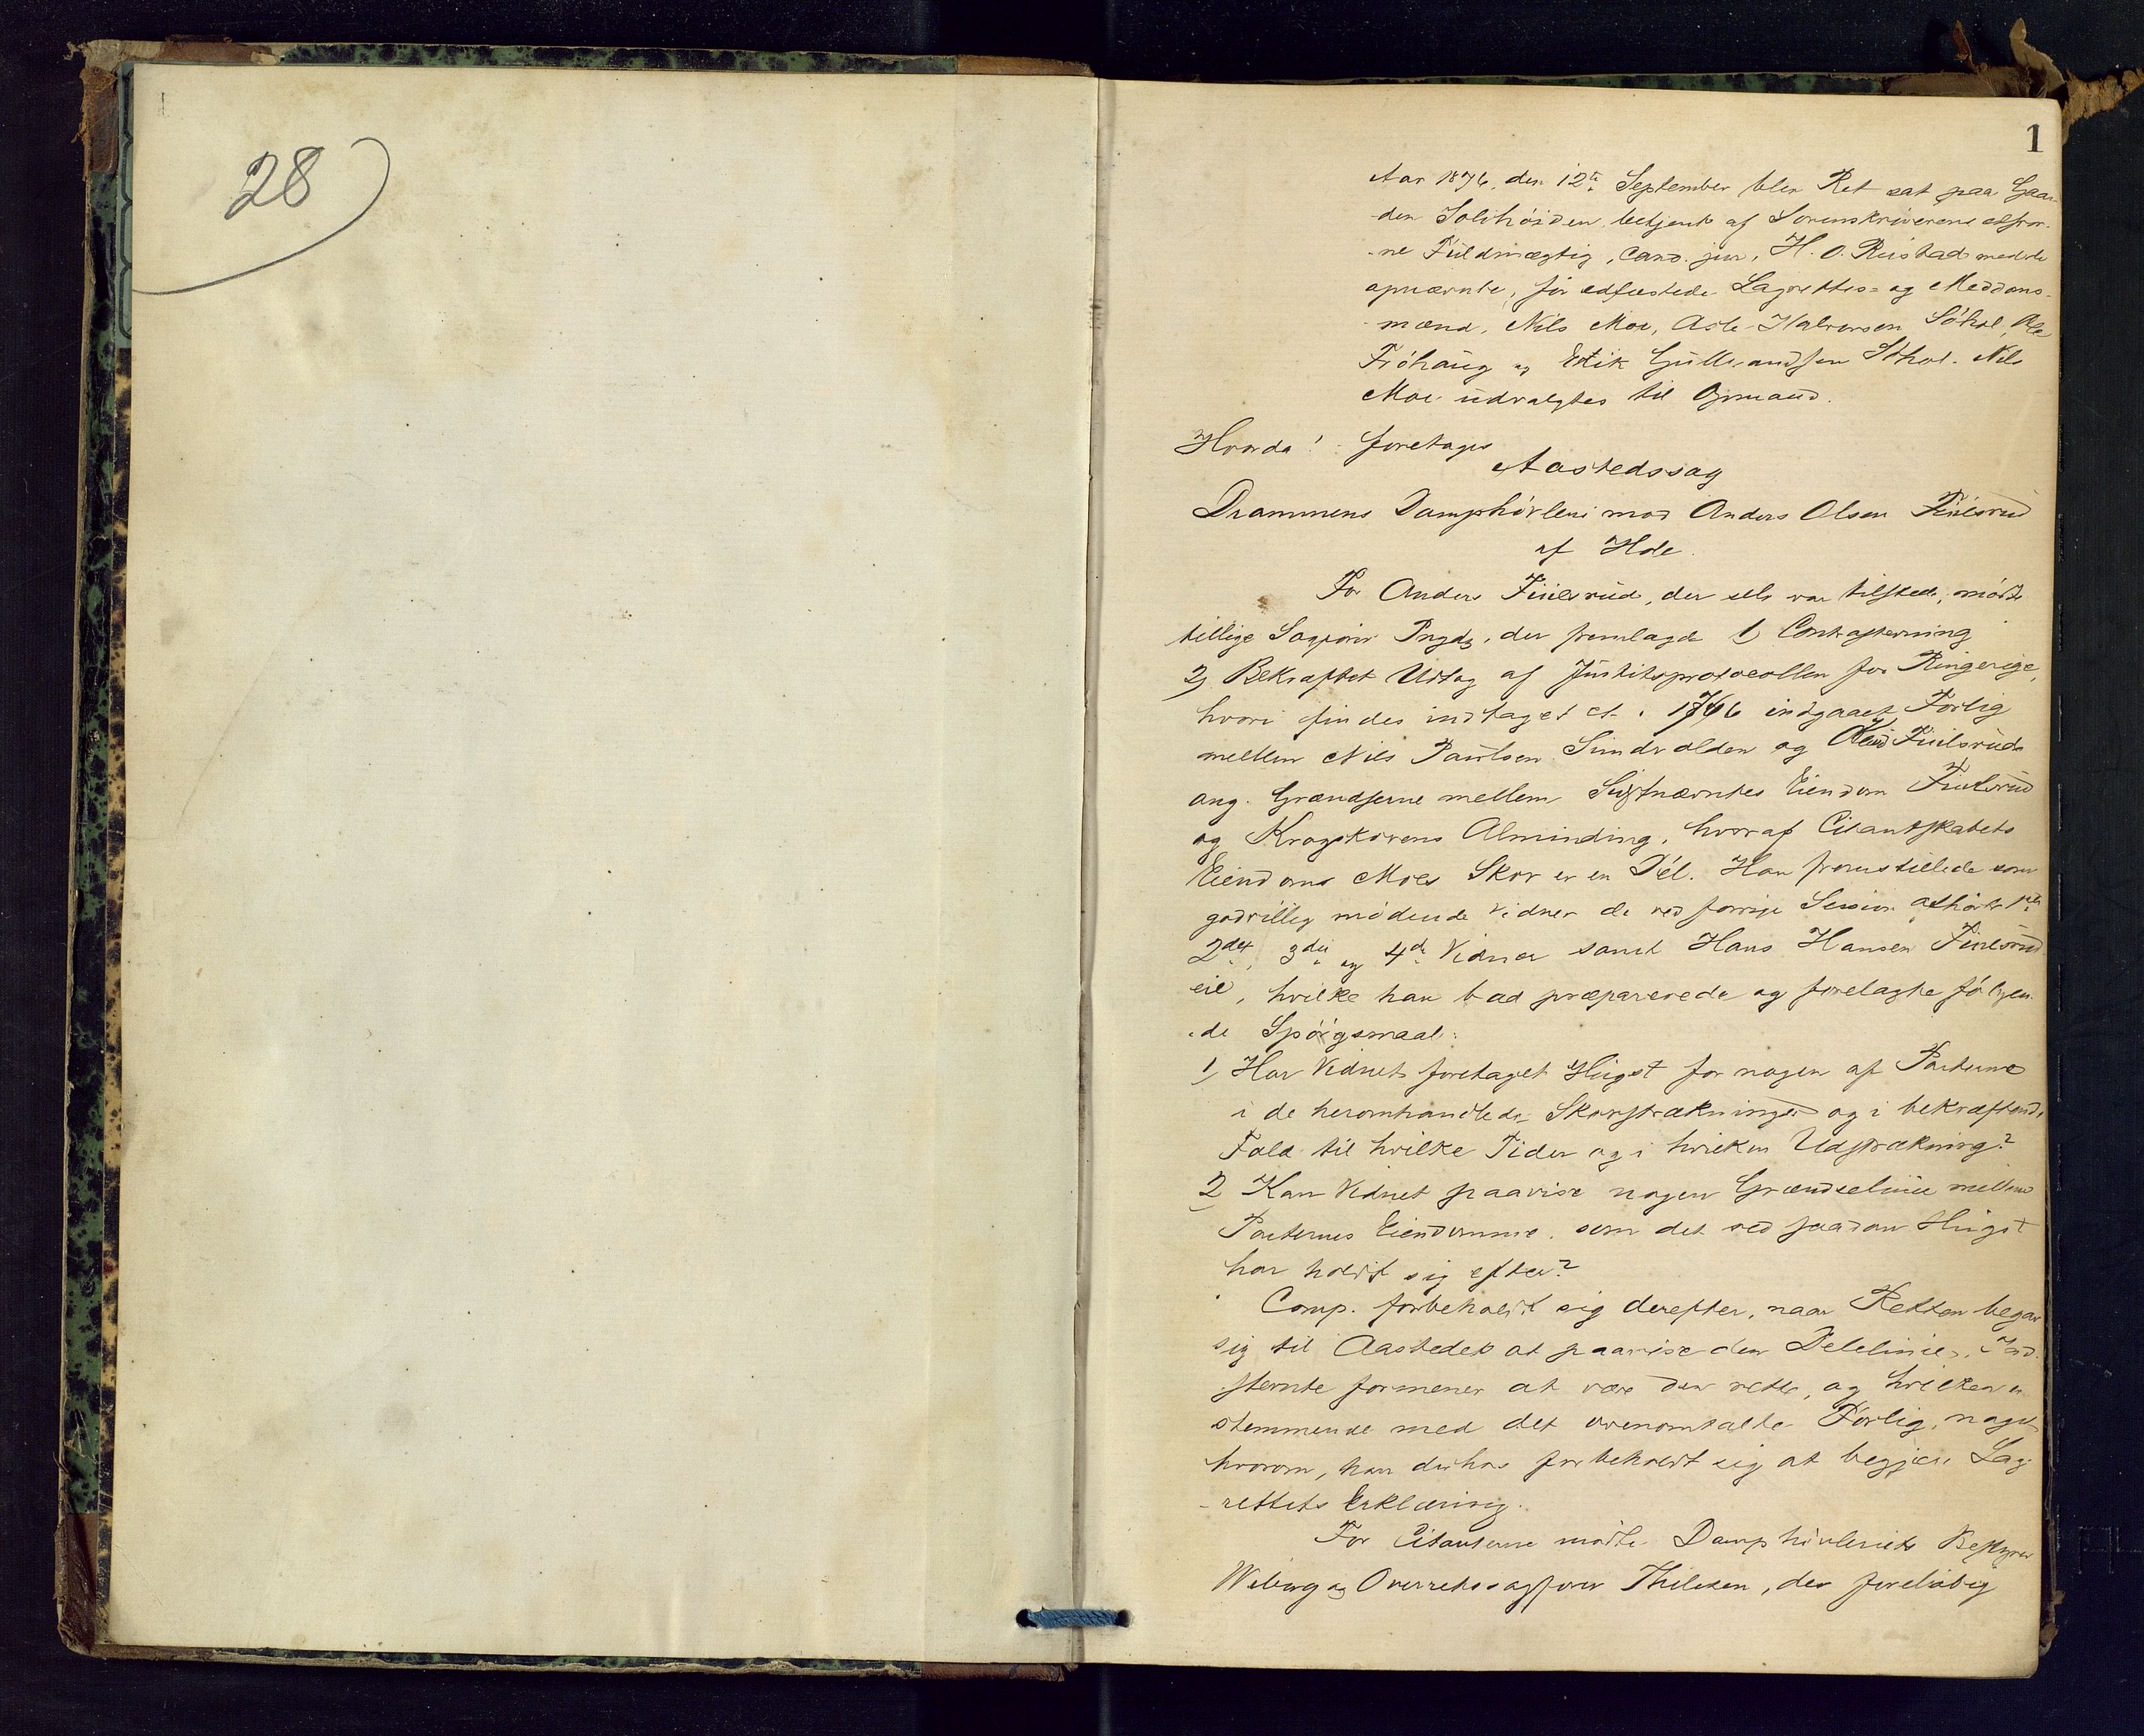 28
1
Aar 1876, den 12te September blev Ret sat paa Gaar-
den Solihöiden, betjent af Sorenskriverens edsvor-
ne Fuldmægtig, Cand. jur, H. O. Rustad med de
opnævnte, för edfæstede Lagrettes- og Meddoms-
mænd, Nils Moe, Asle Halvorsen Söhol, Ole
Fröhaug og Erik Gulbrandsen Söhol. Nils
Moe udvalgtes til Ormand.
Hvorda! foretages
Aastedssag
Drammens Damphövleri mod Anders Olsen Fiulsrud
af Hole.
For Anders Fiulsrud, der selv var tilstede, mödte
tillige Sagförer, der fremlagde 1) Contrastevning
2) Bekræftet Udtog af Justitsprotocollen for Ringerige,
hvori findes indtaget et i 1766 indgaaet Forlig
mellem Nils Paulsen Sundvolden og Knud Fiulsrud
ang. Grændserne mellem Sidstnævntes Eiendom Fiulsrud
og Krogskovens Alminding, hvoraf Citantskabets
Eiendoms Moes Skov er en Del. Han fremstillede som
godvillig mödende Vidner de ved forrige Session afhörte 1ste
2det, 3die og 4de Vidner samt Hans Hansen Fiulsrud
eie, hvilke han bad præparerede og forelagte fölgen-
de Spörgsmaal:
1) Har Vidnet foretaget Hugst for nogen af Parterne
i de heromhandlede Skovstrækninger og i bekræftende
Fald til hvilke Tider og i hvilken Udstrækning?
2) Kan Vidnet paavise nogen Grændselinie mellem
Parternes Eiendomme, som det ved saadan Hugst
har holdt sig efter?
Comp. forbeholdt sig derefter, naar Retten begav
sig til Aastedet at paavise den Delelinie, Ind-
stevnte formener at være den rette, og hvilken er
stemmende med det ovenomtalte Forlig, noget
hvorom, han derhos forbeholdt sig at begjære Lag-
rettets Erklæring.
For Citanterne mödte Damphövleriets Bestyrer
Wiborg og Overretssagförer Thilesen, der forelöbig